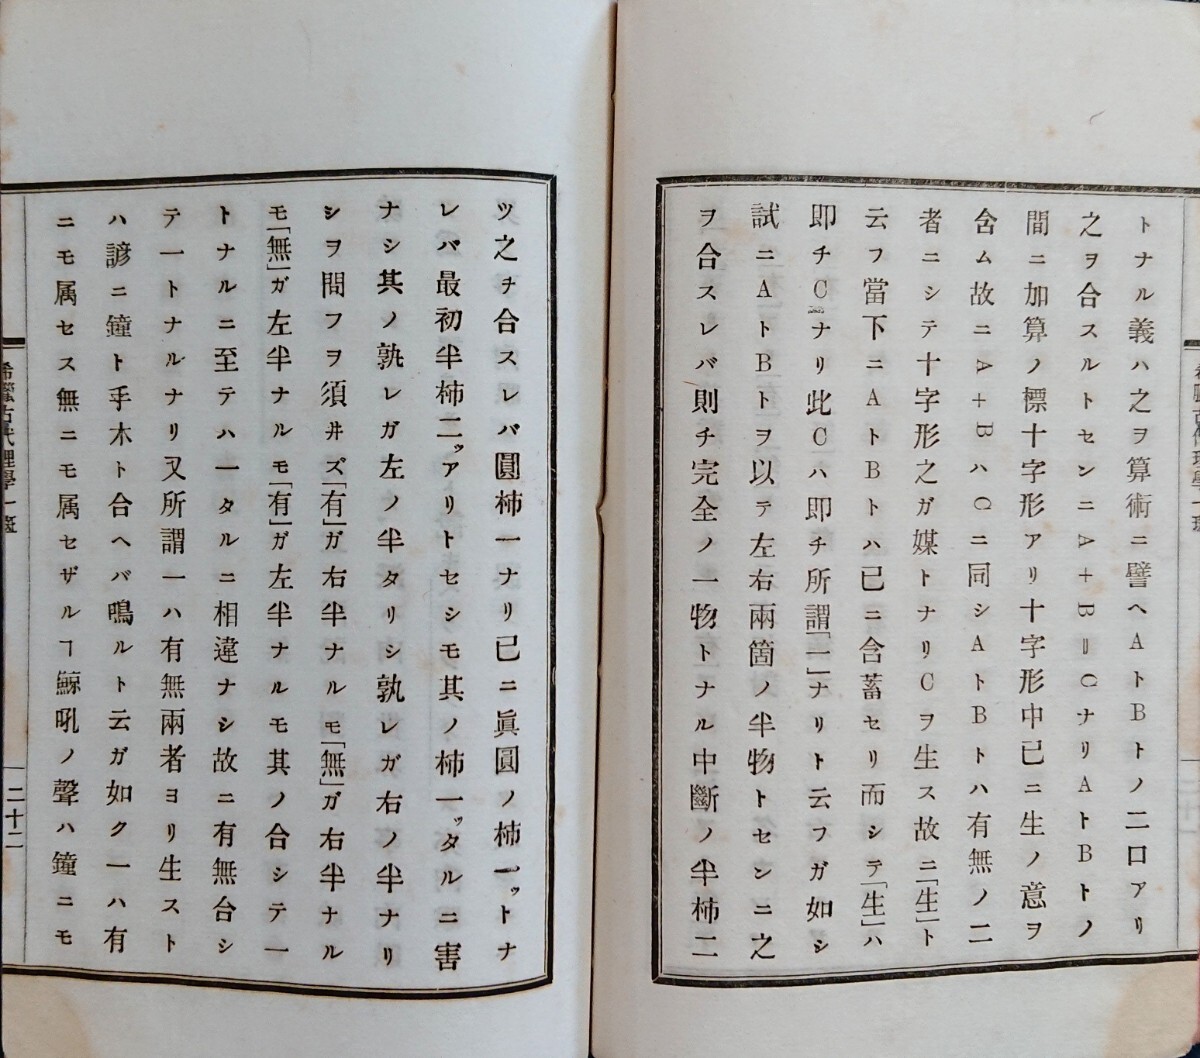 トナル義ハ之ヲ算術ニ譬ヘAトBトノ二口アリ
之ヲ合スルトセンニA+B=CナリAトBトノ
間ニ加算ノ標十字形アリ十字形中已ニ生ノ意ヲ
含ム故ニA+BハCニ同シAトBトハ有無ノ二
者ニシテ十字形之ガ媒トナリCヲ生ス故ニ「生」ト
云フ當下ニAトBトハ已ニ含蓄セリ而シテ「生」ハ
即チCナリ此Cハ即チ所謂「一」ナリト云フガ如シ
試ニAトBトヲ以テ左右兩箇ノ半物トセンニ之
ヲ合スレバ則チ完全ノ一物トナル中斷ノ半柿二
ツ之チ合スレバ圓柿一ナリ已ニ眞圓ノ柿一ットナ
レバ最初半柿二ッアリトセシモ其ノ柿一ッタルニ害
ナシ其ノ孰レガ左ノ半タリシ孰レガ右ノ半ナリ
シヲ問フヲ須井ズ「有」ガ右半ナルモ「無」ガ右半ナル
モ「無」ガ左半ナルモ「有」ガ左半ナルモ其ノ合シテ一
トナルニ至テハ一タルニ相違ナシ故ニ有無合シ
テ一トナルナリ又所謂一ハ有無兩者ヨリ生スト
ハ諺ニ鐘ト手木ト合ヘバ鳴ルト云ガ如ク一ハ有
ニモ属セス無ニモ属セザルヿ鯨吼ノ聲ハ鐘ニモ
希臘古代理學一斑
二十二